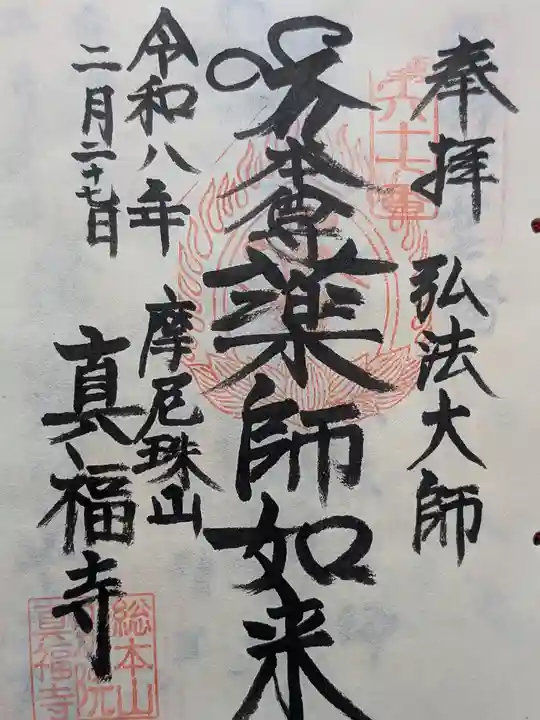 奉拝
弘法大師
本尊薬師如来
令和八年
二月二十七日
摩尼珠山
真福寺
総本山
院
真福寺